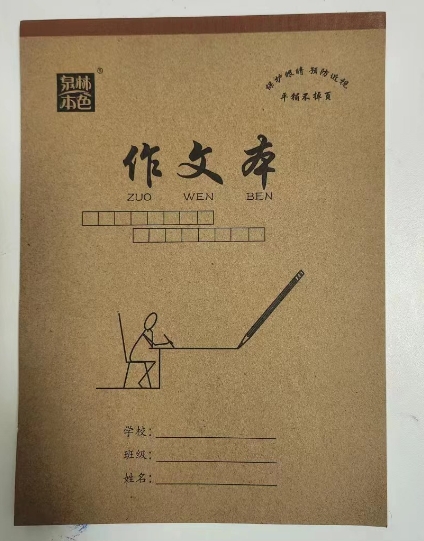 泉林
本色
®
保护眼睛 预防近视
平摊不掉页
作文本
ZUO WEN BEN
学校：
班级：
姓名：